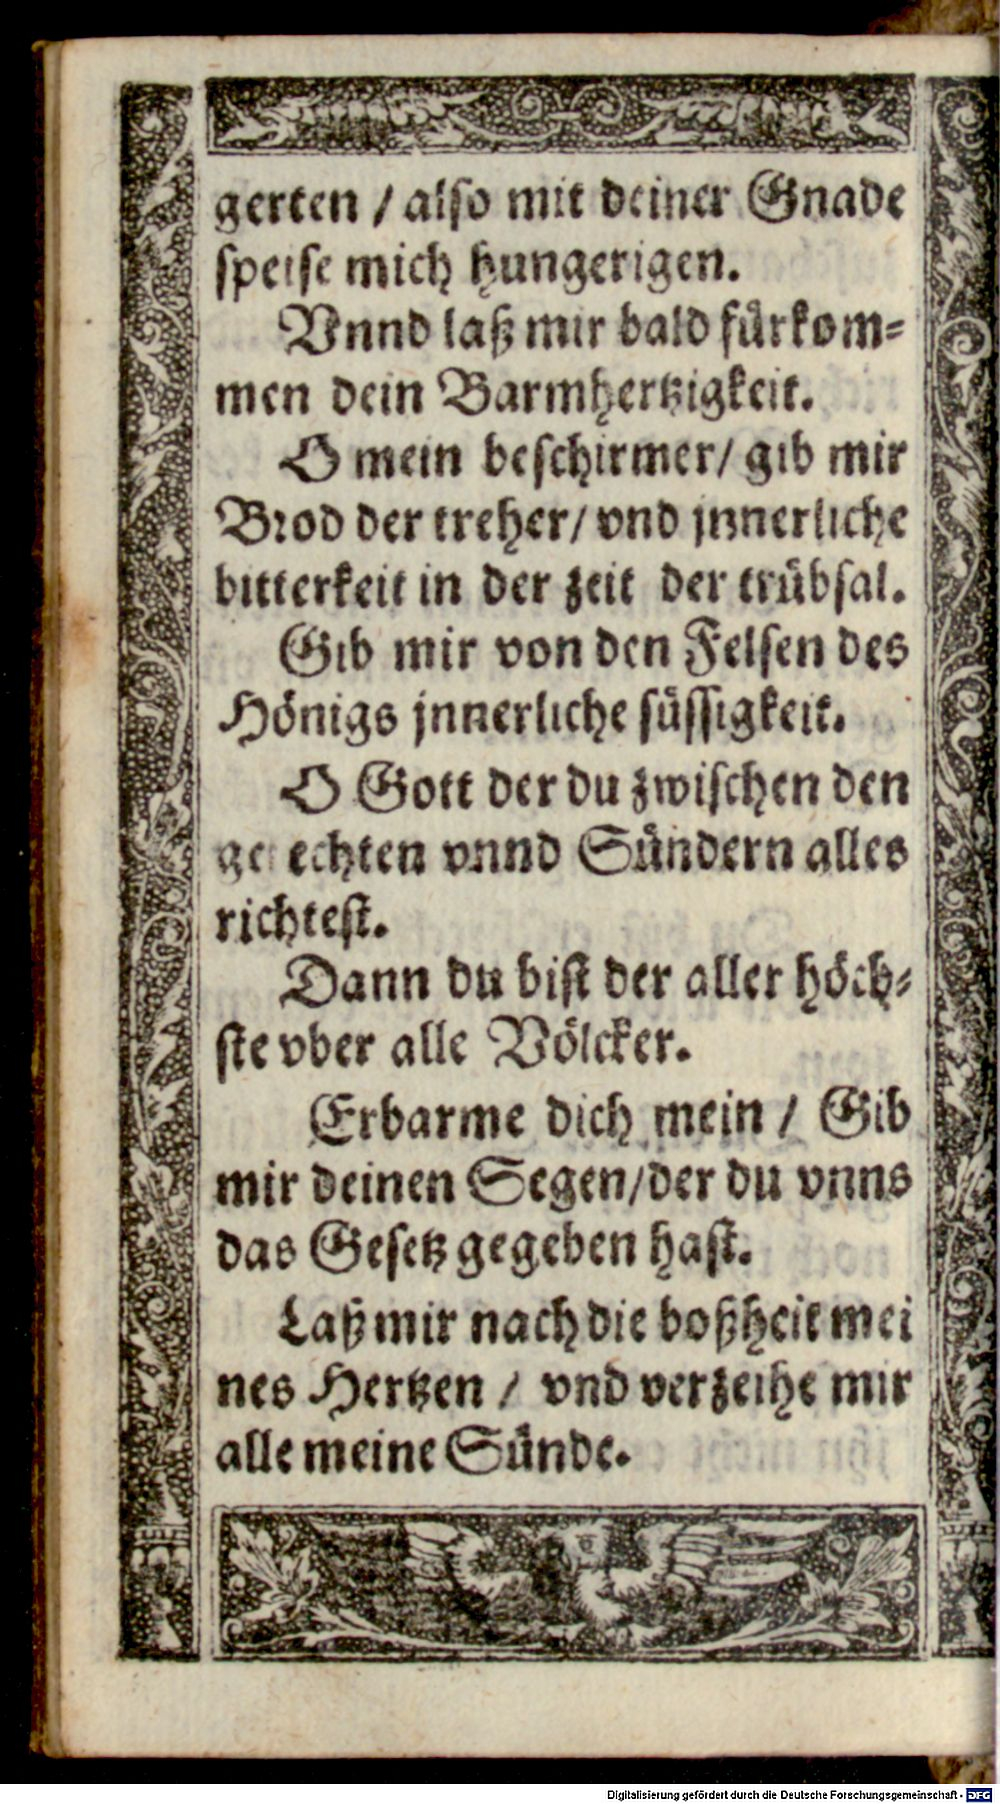 gerten / also mit deiner Gnade
speise mich hungerigen.
Vnnd laß mir bald fürkom-
men dein Barmhertzigkeit.
O mein beschirmer/ gib mir
Brod der treher/ vnd jnnerliche
bitterkeit in der zeit der trübsal.
Gib mir von den Felsen des
Hönigs jnnerliche süssigkeit.
O Gott der du zwischen den
gerechten vnnd Sündern alles
richtest.
Dann du bist der aller höch-
ste vber alle Völcker.
Erbarme dich mein / Gib
mir deinen Segen/der du vnns
das Gesetz gegeben hast.
Laß mir nach die boßheit mei
nes Hertzen / vnd verzeihe mir
alle meine Sünde.
Digitalisierung gefördert durch die Deutsche Forschungsgemeinschaft - DFG